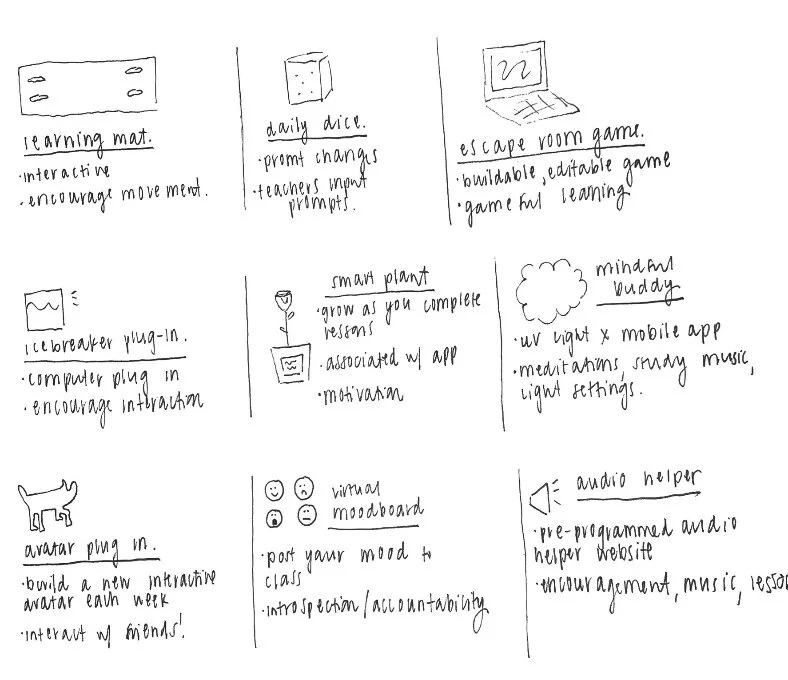 learning mat.
• interactive
• encourage movement.
daily dice.
• promt changes
• teachers input
prompts.
escape room game.
• buildable, editable game
• gameful learning
icebreaker plug-in.
• computer plug in
• encourage interaction
smart plant
• grow as you complete
lessons
• associated w/ app
• motivation
mindful
buddy
• uv light x mobile app
• meditations, study music,
light settings.
avatar plug in.
• build a new interactive
avatar each week
• interact w/ friends!
virtual
moodboard
• post your mood to
class
• introspection/accountability
audio helper
• pre-programmed audio
helper website
• encouragement, music, lesso